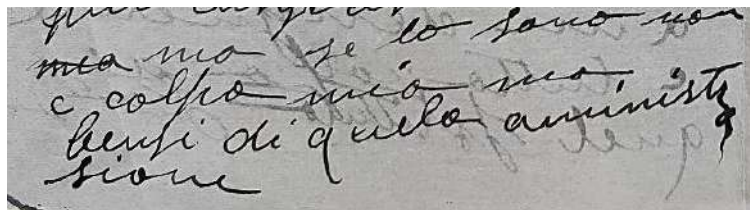 mia ma se lo sono non
c colpa mia ma
bensi di quela aministr
sione